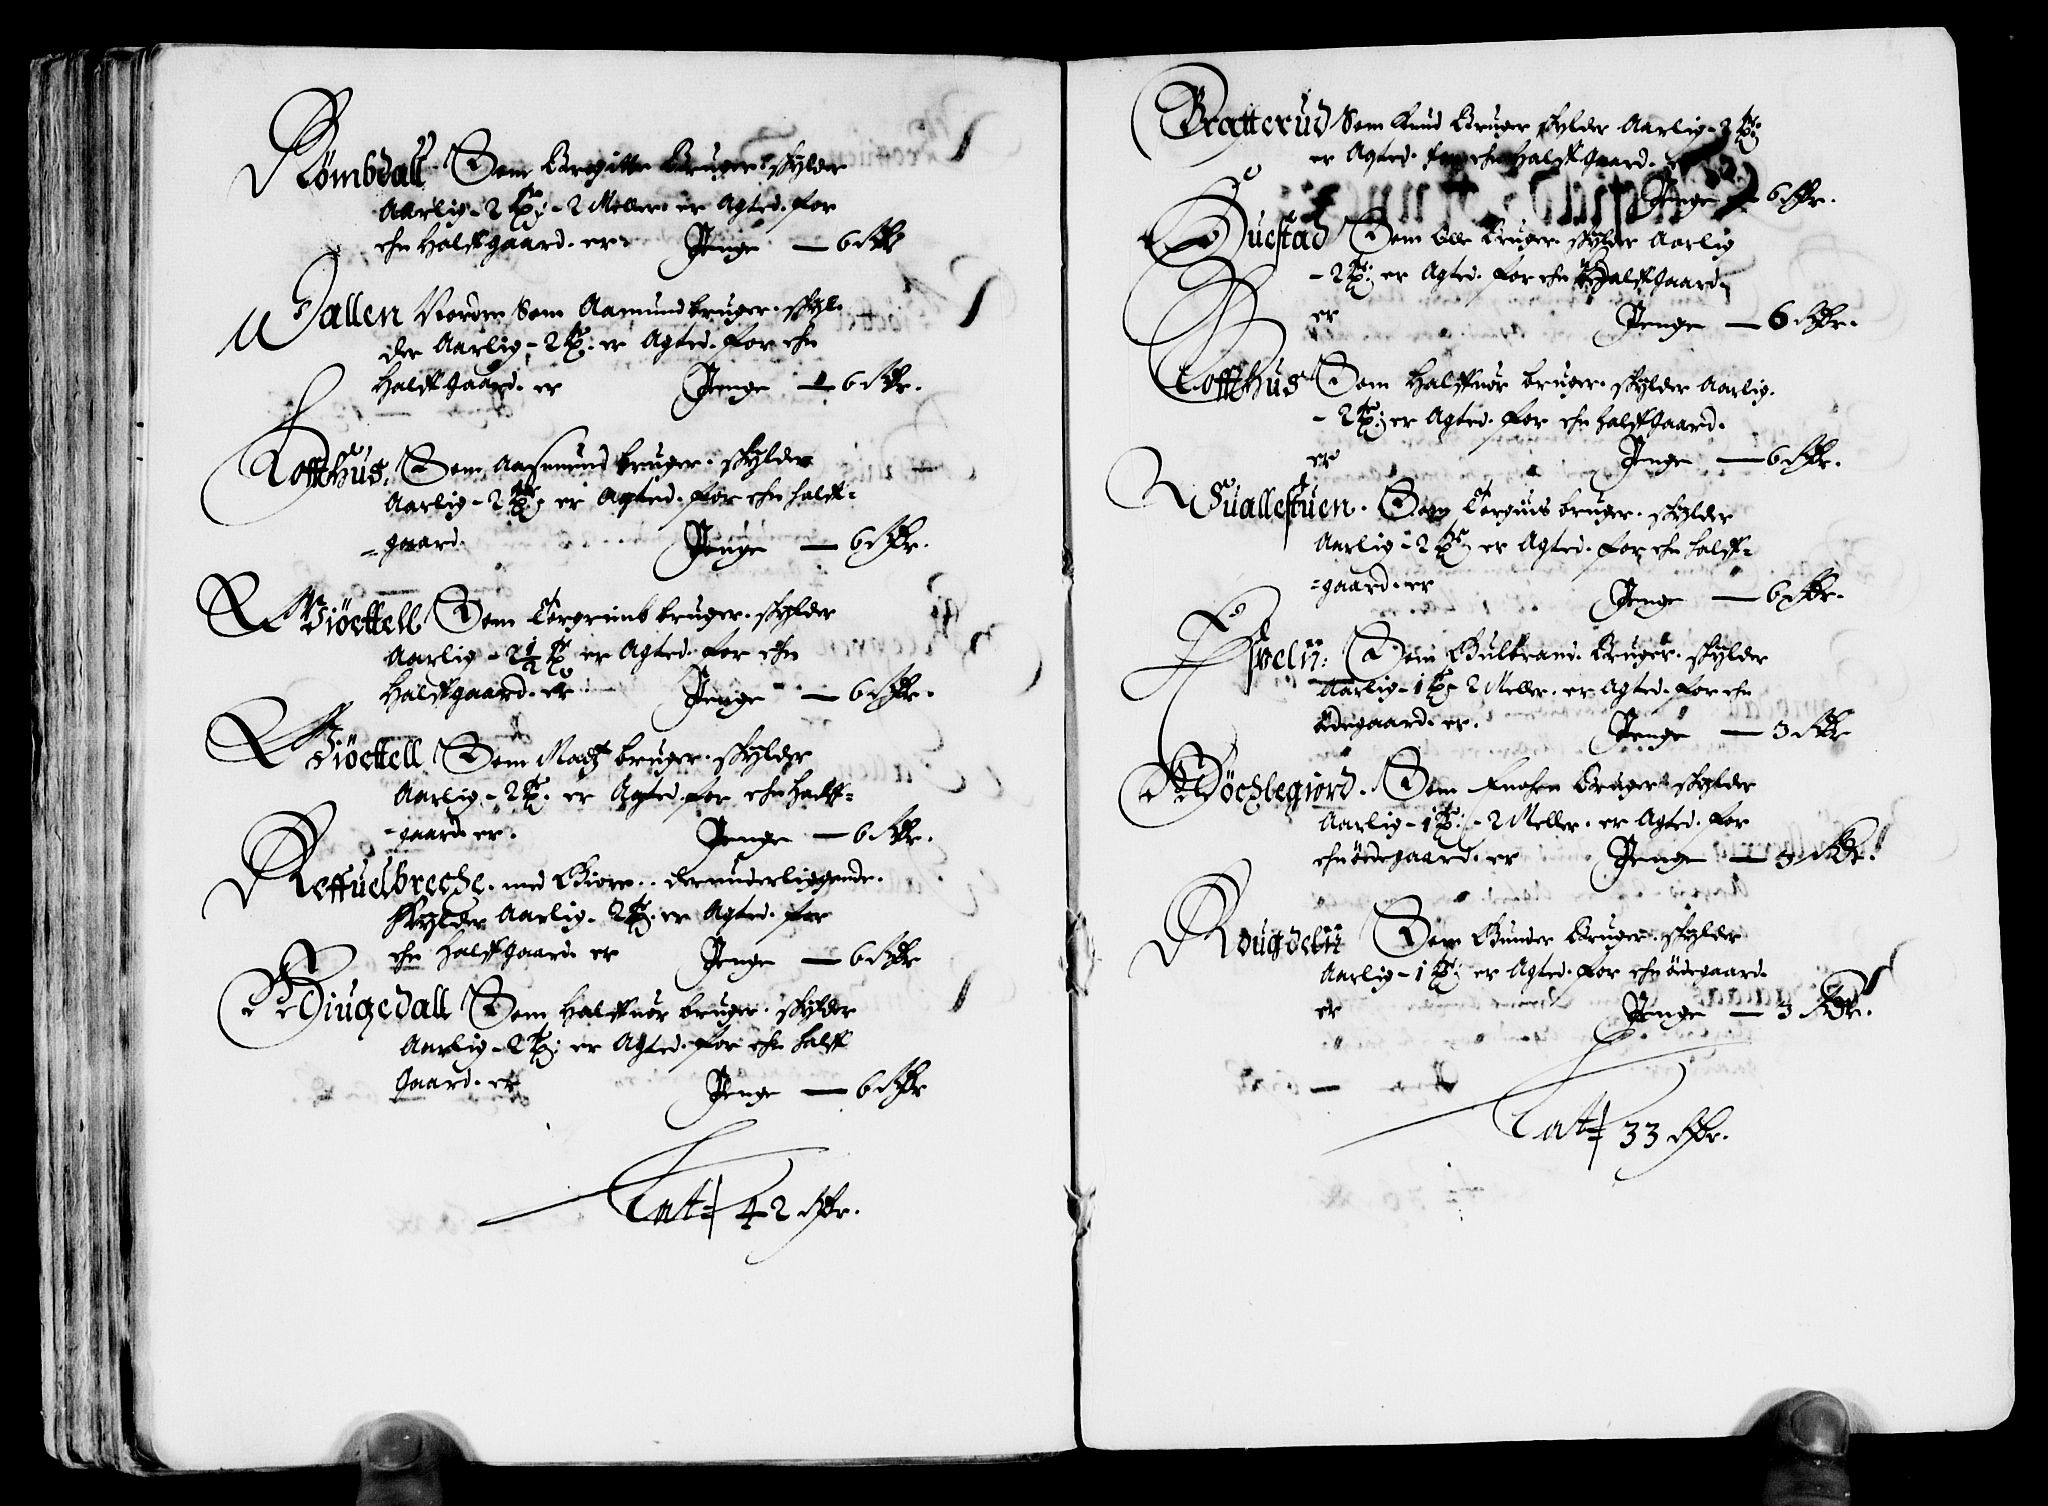 Römbdall Som Bregitte Bruger skylder
Aarlig - 2 - 2 Meller er Agted. for
ehn Halffgaard. er Penge — 6
Wallen Nordre Som Aamund bruger. skyl.
der Aarlig - 2 er Agted. for ehn
Halffgaard. er Penge — 6
Loffthus. Som Aasmund bruger. skylder
Aarlig - 2 er Agted. for ehn halff-
=gaard. Penge — 6
Giöettell Som Torgrimb bruger. skylder
Aarlig - 2½ er Agted. for ehn
Halffgaard. er Penge — 6
Giöettell Som Madz bruger. skylder
Aarlig - 2 er Agted for ehn Halff=
=gaard er. Penge — 6
Reffuelbreche. med Giore.. derunderliggende.
skylder Aarlig. 2 er Agted. for
ehn halffgaard er Penge — 6
Diugedall Som Halffuor bruger. skylder
Aarlig - 2 er Agted. for ehn halff
gaard. er Penge — 6
Latt 42
Bratterud Som Knud Bruger skylder Aarlig - 2
er Agted. for ehn Halffgaard.
Penge — 6
Duestad Som Olle Bruger. skylder Aarlig
- 2 er Agted. for ehn Halffgaard.
er Penge — 6
Loffthus Som Halffuor bruger. skylder Aarlig.
- 2 er Agted. for ehn halffgaard.
er Penge — 6
Suallestuen. Som Torgius bruger. skylder
Aarlig - 2 er Agted. for ehn halff=
=gaard. er Penge — 6
Som Gulbrand. Bruger. skylder
Aarlig - 1 2 Meller. er Agted. for ehn
ödegaard. er. Penge — 3
Som Bruger skylder
Aarlig - 1 - 2 Meller. er Agted. for
ehn ödegaard. er Penge — 3
Rougdelii Som Gunder Bruger. skylder
Aarlig - 1 er Agted. for ehn ödegaard.
er Penge — 3
Latt 33